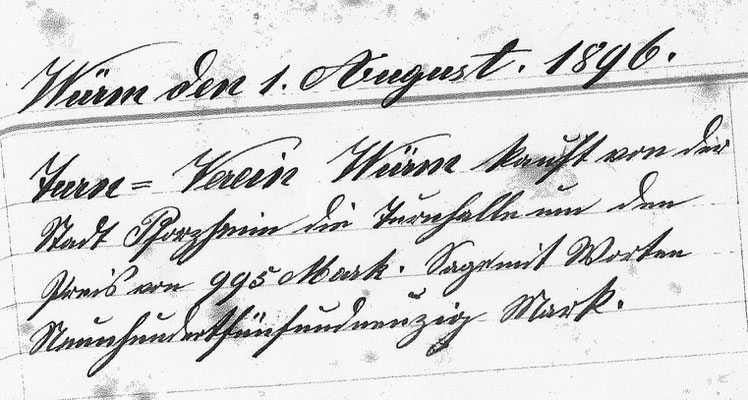 Würm den 1. August. 1896.
Turn= Verein Würm kauft von der
Stadt Pforzheim die Turnhalle um den
Preis von 995 Mark. Sage mit Worten
Neunhundertfünfundneunzig Mark.